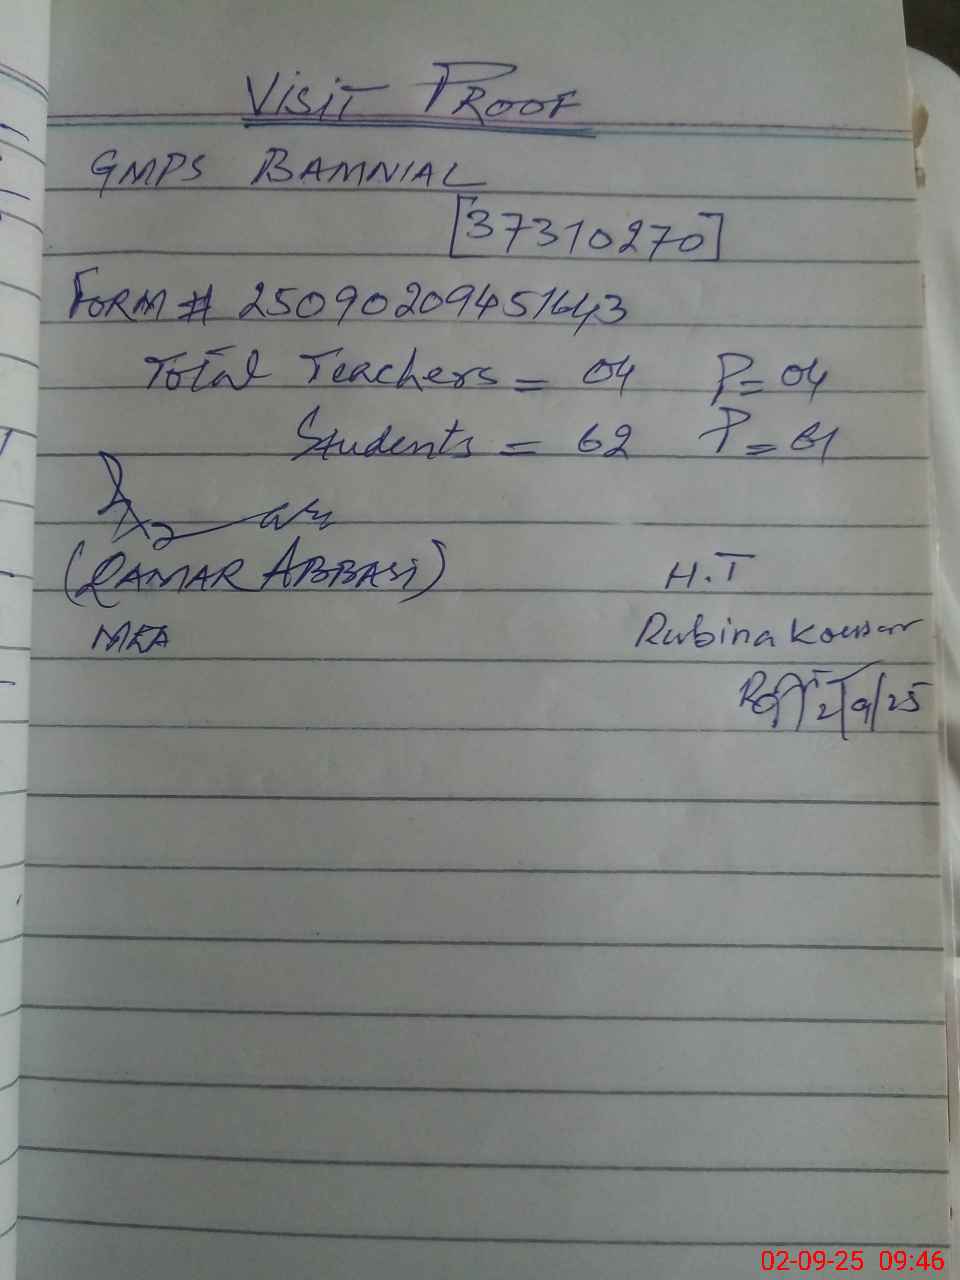 VISIT PROOF
GMPS BAMNIAL
[37310270]
FORM # 25090209451643
Total Teachers = 04 P = 04
Students = 62 P = 61
(QAMAR ABBASI)
MEA
H.T
Rubina Kousar
2/9/25
02-09-25 09:46